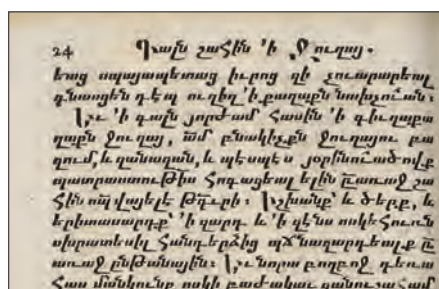 24 Գնալն շահին 'ի Ջուղայ.
եաց սպայապետաց իւրոց զի չուարարեալ
գնասցեն դէպ ուղիղ 'ի քաղաքն նախչուան:
Եւ 'ի գալն յորժամ հասին 'ի գիւղաքա
ղաքն Ջուղայ, ամ բնակիչքն Ջուղայու բա
զում, և զանազան, և պէսպէս յօրինուածովք
պատրաստութիս հոգացեալ էին առաջ շա
հին
երիտասարդք 'ի զարդ և 'ի զէնս ոսկեհուռն
սխրատեսիլ հանդերձից պճնազարդեալք
առաջ ընթանային: Եւ նորա բողբոջ գեռա
հաս մանկունք ոսկի բաժակաւ գանուշահամ